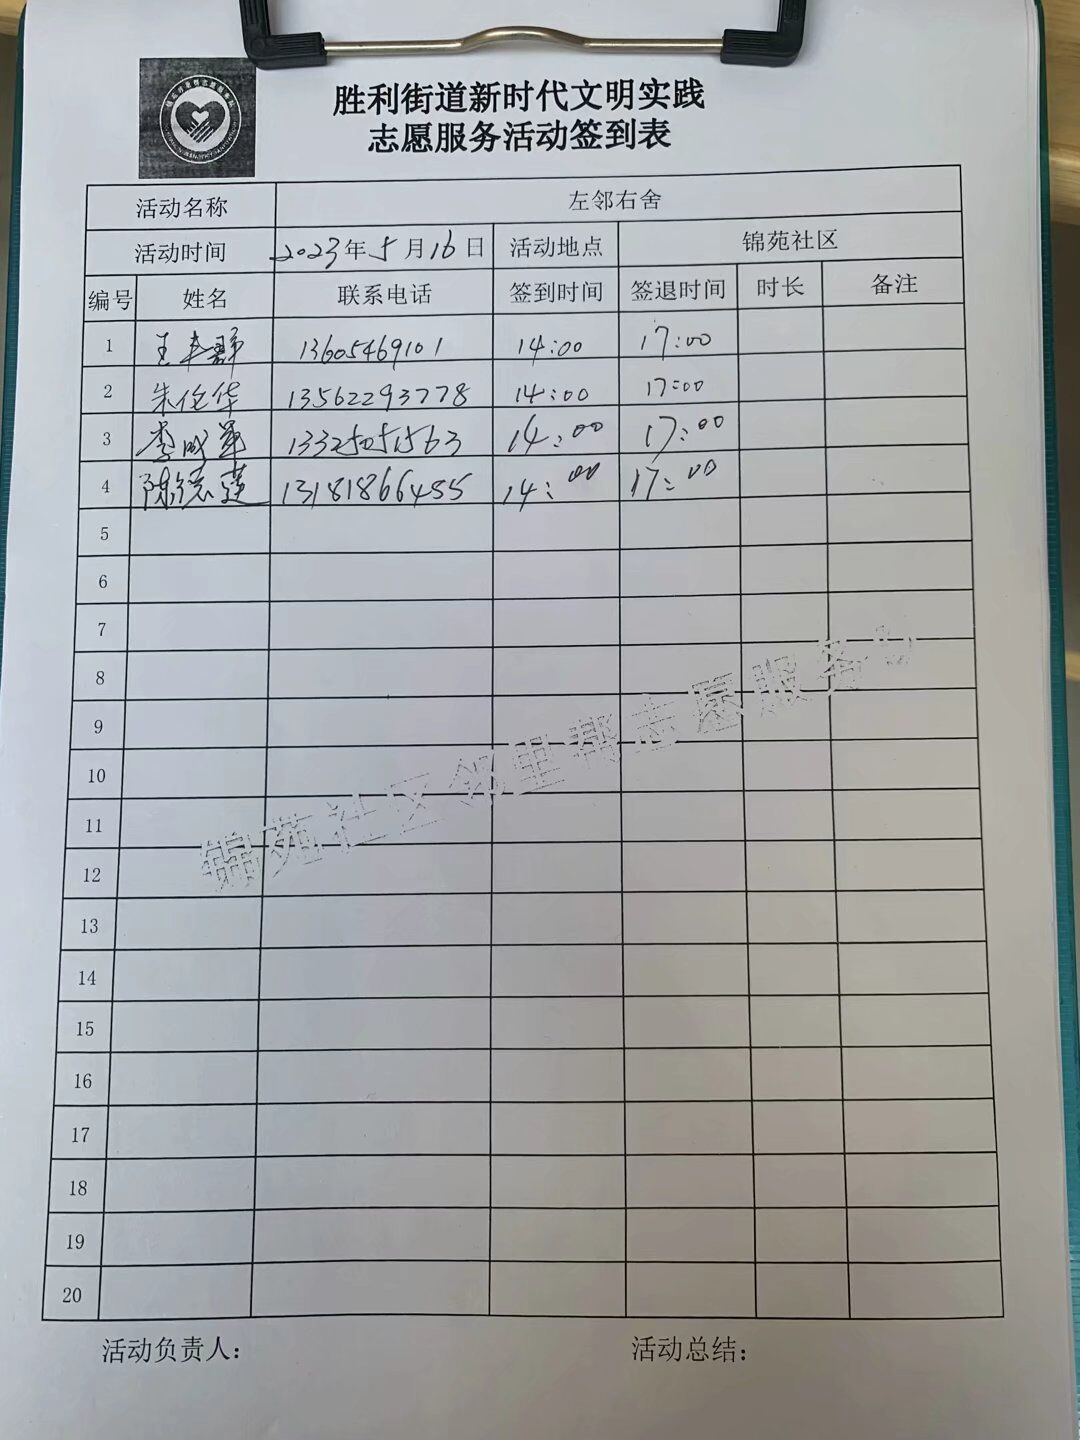 胜利街道新时代文明实践
志愿服务活动签到表
活动名称 左邻右舍
活动时间 2023年5月16日 活动地点 锦苑社区
编号 姓名 联系电话 签到时间 签退时间 时长 备注
1 王 群 13605469101 14:00 17:00
2 朱伦华 13562293778 14:00 17:00
3 李成军 13325051563 14:00 17:00
4 陈德莲 13181866455 14:00 17:00
5
6
7
8
9
10
11
12
13
14
15
16
17
18
19
20
锦苑社区邻里帮志愿服务
活动负责人: 活动总结: